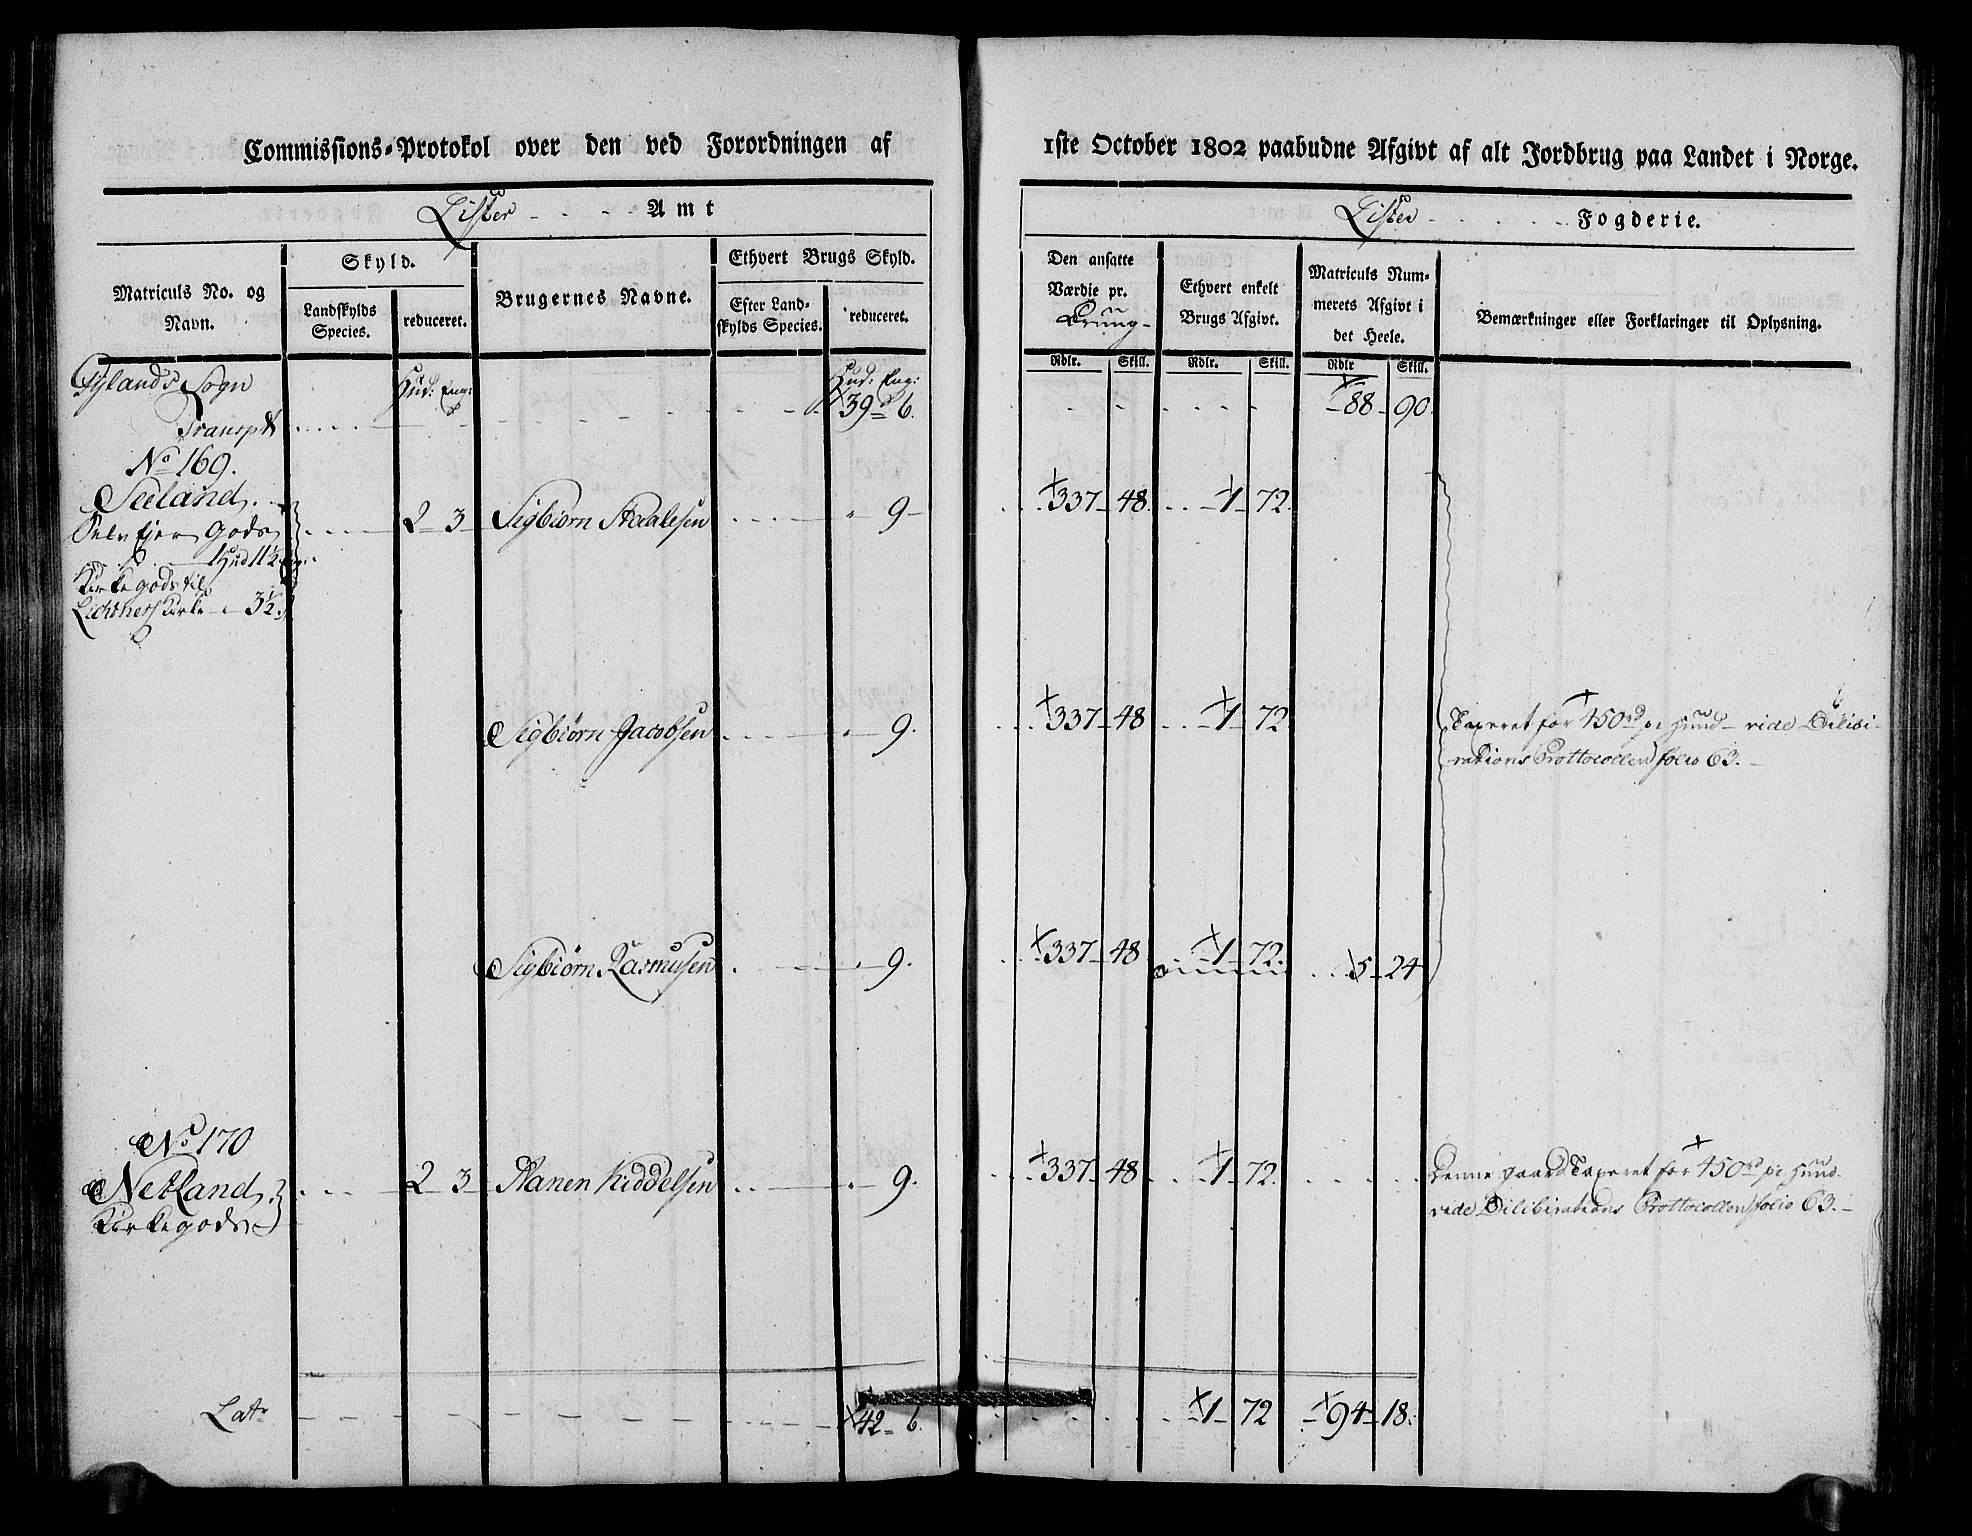 Commissions-Protokol over den ved Forordningen af 1ste October 1802 paabudne Afgivt af alt Jordbrug paa Landet i Norge.
Lister Amt
Lister Fogderie.
Matriculs No. og Navn.
Skyld.
Landskylds Species.
reduceret.
Brugernes Navne.
Ethvert Brugs Skyld.
Efter Landskylds Species.
reduceret.
Den ansatte Værdie pr.
Ethvert enkelt Brugs Afgivt.
Matriculs Nummerets Afgivt i det Heele.
Bemærkninger eller Forklaringer til Oplysning.
Rdlr. Skill. Rdlr. Skill. Rdlr Skill.
Sogn Hud: Eng: Hud: Eng:
Transpt 39 6. 88 90.
No 169.
Seeland.
Selv Ejer Gods 2 3 Sigbiørn Staalesen 9 337 48. 1 72.
1 Hud 11½ Eng:
Kirkegods til
Kirke 3½.
Sigbiørn Jacobsen 9. 337 48 1 72. Taxeret for 450rd pr Huud vide Dilibi-
rations Prottocollen folio 63.
Sigbiørn Rasmusen 9. 337 48 1 72. 5 24
No 170
Netland. 2 3 Hanen Kiddelsen 9. 337 48 1 72. Denne gaard Taxeret for 450rd pr Huud
Kirkegods vide Dilibirations Prottocollen folio 63.
Latr 42 6. 1 72 94 18.